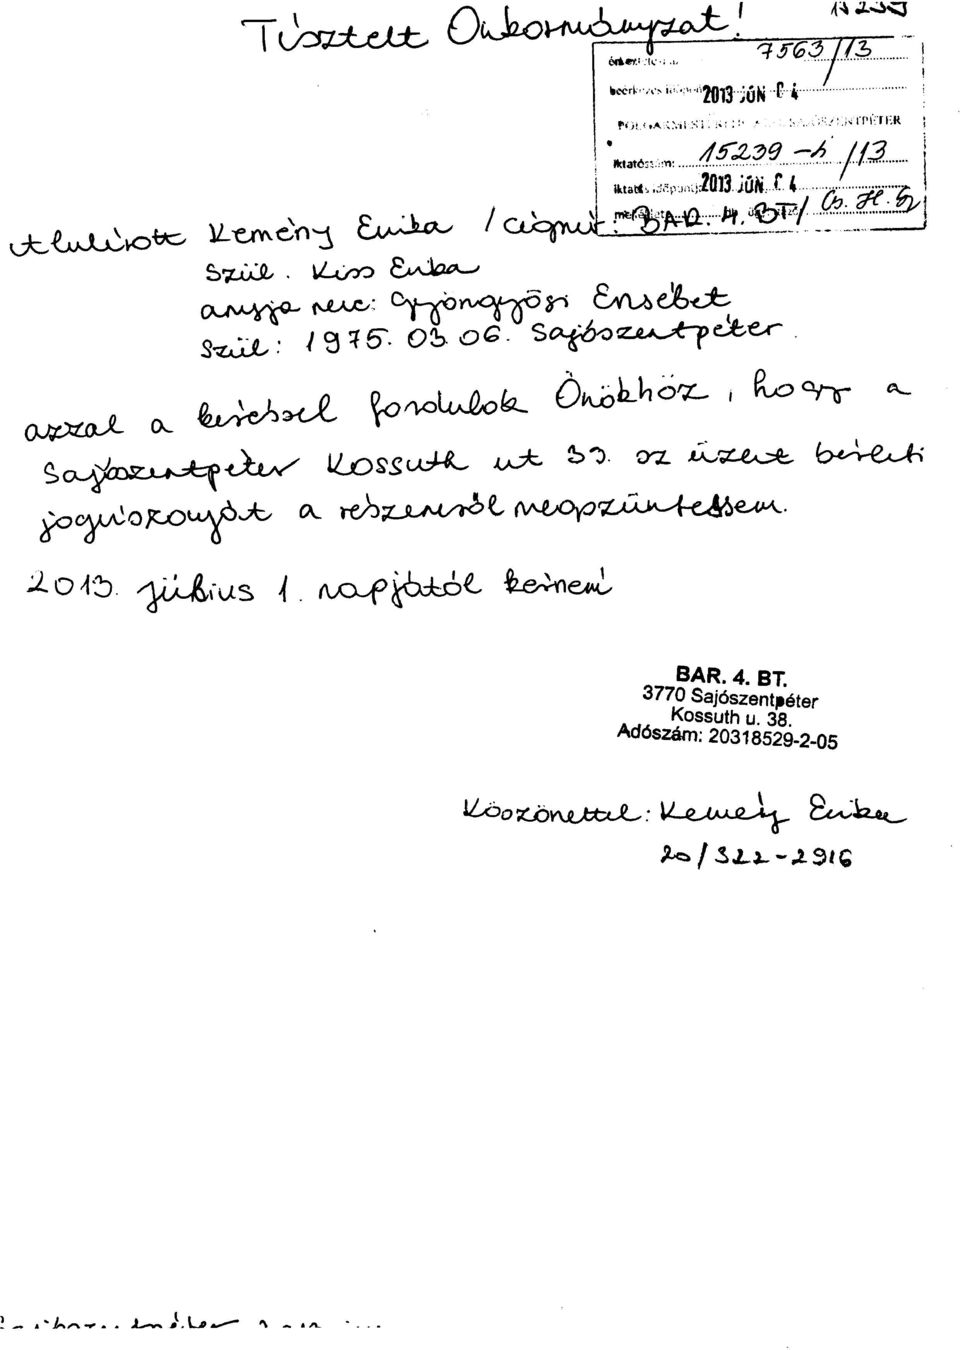 Tisztelt Önkormányzat!
7563/13
2013 JÚN 04
POLGÁRMESTERI SAJÓSZENTPÉTER
Iktatószám: 15239-h/13
iktatás időpontja 2013 JÚN 04
Cs. H. Gy
Alulírott Kemény Erika / Cégnév: BAR. 4. BT/
Szül. Kiss Erika
anyja neve: Gyöngyösi Erzsébet
Szül: 1975. 03. 06. Sajószentpéter.
azzal a kéréssel fordulok Önökhöz, hogy a
Sajószentpéter Kossuth ut 33. sz üzlet bérleti
jogviszonyát a részemről megszüntessem.
2013. július 1. napjától kérném
BAR. 4. BT.
3770 Sajószentpéter
Kossuth u. 38.
Adószám: 20318529-2-05
Köszönettel: Kemény Erika
20/322-2916